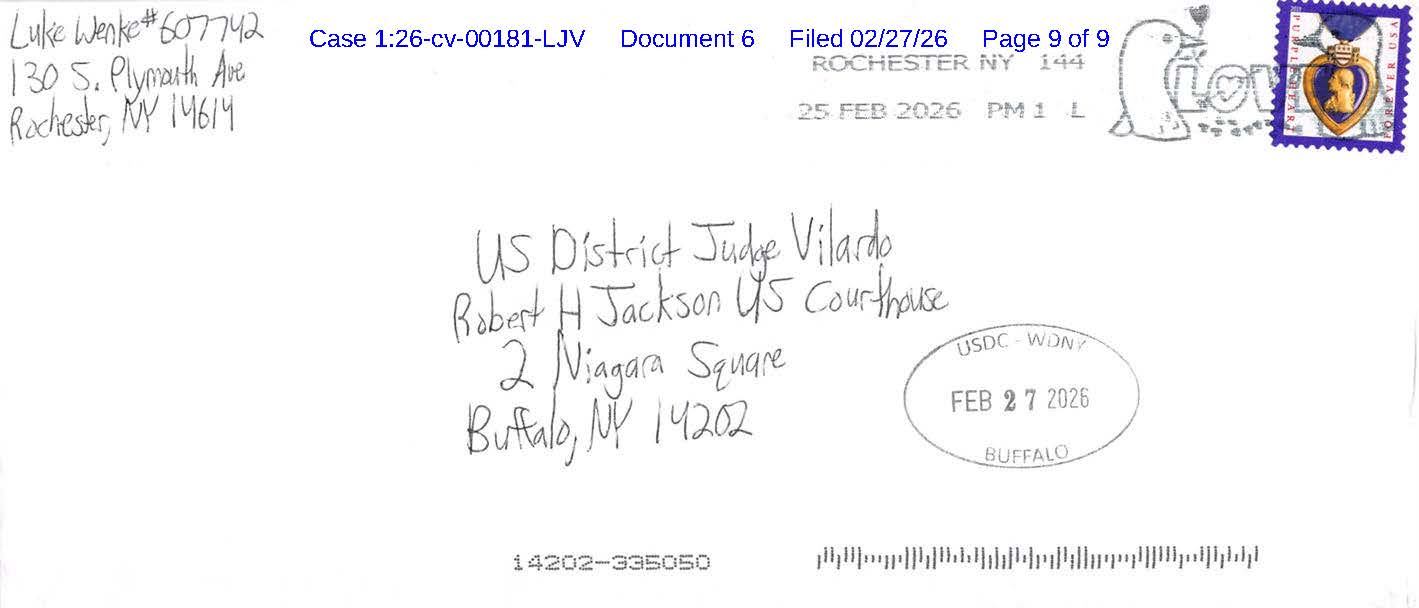 Luke Wenke #607742
130 S. Plymouth Ave
Rochester, NY 14614
Case 1:26-cv-00181-LJV Document 6 Filed 02/27/26 Page 9 of 9
ROCHESTER NY 144
25 FEB 2026 PM 1 L
LOVE
PURPLE HEART
FOREVER USA
US District Judge Vilardo
Robert H Jackson US Courthouse
2 Niagara Square
Buffalo, NY 14202
USDC - WDNY
FEB 27 2026
BUFFALO
14202-335050